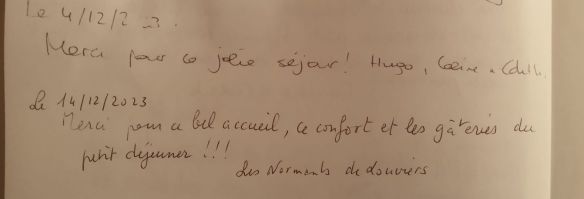 Le 4/12/2023.
Merci pour ce jolie séjour! Hugo,
Le 14/12/2023
Merci pour ce bel accueil, ce confort et les gâteries du
petit déjeuner !!!
Les Normands de Louviers